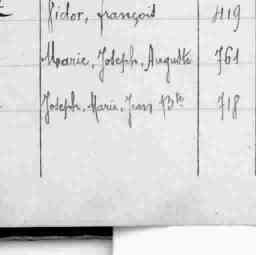 Victor, François 419
Marie, Joseph, Auguste 761
Joseph, Marie, Jean Bte 718